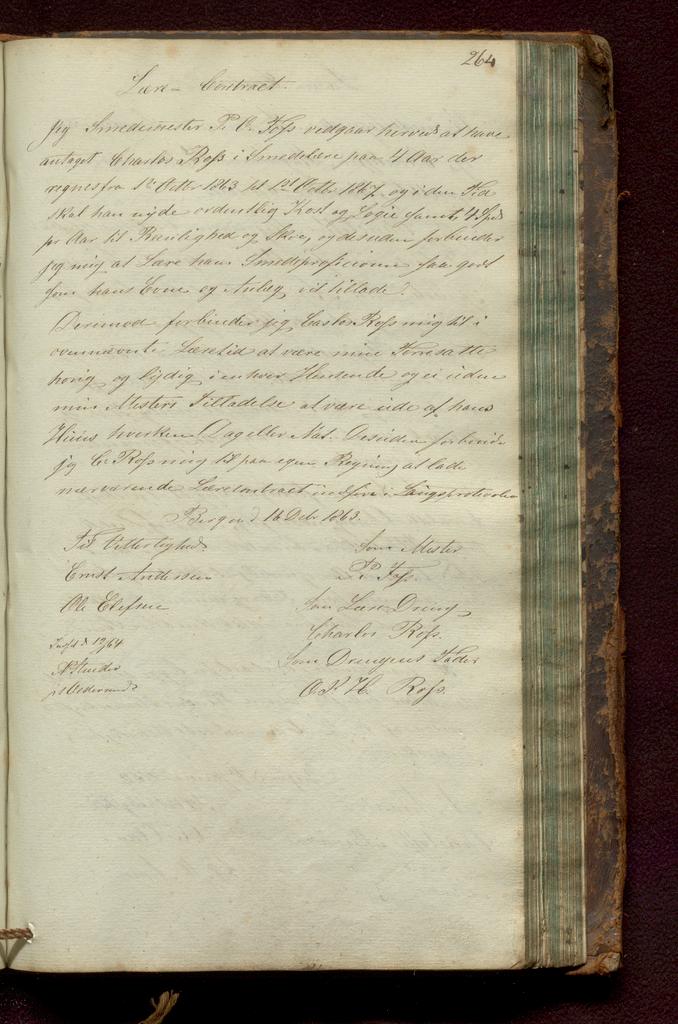 264
Lære-Contract.
Jeg Smedemester P. O. Foss vedgaar herved at have
antaget Charlos Ross i Smedelære paa 4 Aar der
regnes fra 1st Octbr 1863 til 1st Octbr 1867, og i den Tid
skal han nyde ordentlig Kost og Logie samt 4 Spd
pr Aar til Reenlighed og Skoe, og desuden forbinder
jeg mig at Lære ham Smedeprofessionen saa godt
som hans Evne og Anlæg vil tillade.
Derimod forbinder jeg Carlos Ross mig til i
ovennævnte Læretid at være mine Foresatte
hørig og lydig i enhver Henseende og ei uden
min Mesters Tilladelse at være ude af hans
Huus hverken Dag eller Nat. Desuden forbinder
jeg C. Ross mig til paa egen Regning at lade
nærværende Lærecontract indføre i Laugsprotocolen
Bergen d. 16 Debr 1863.
Til Vitterlighed Som Mester
Ernst Andersen P. O. Foss.
Ole Elefsen Som Lære Dreng
Charlos Ross.
Indf. d. 12/64 Som Drengens Fader
O. P. H. Ross.